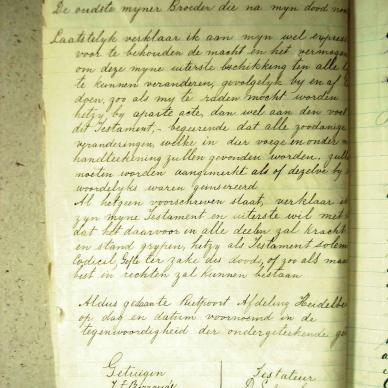 De oudste myner Broeder die na myn dood
Laatstelyk verklaar ik aan myn wel expresse
voor te behouden de macht en het vermogen
om deze myne uiterste beschikking ten alle
te kunnen veranderen, gevolgelyk by en af
doen, zoo als my te raden mocht worden
hetzy by aparte acte, dan wel aan den voet
dit Testament, – begeerende dat alle zoodanige
veranderingen, welke in dier voege en onder
handteekening zullen gevonden worden, zull
moeten worden aangemerkt als of dezelve
woordelyks waren geinsereerd
Al hetgeen voorschreven staat, verklaar
zyn myne Testament en uiterste wil met
dat het daarvoor in alle deelen zal kracht
en stand grypen, hetzy als Testament
Codicil, Gifte ter zake des doods, of zoo als
best in rechten zal kunnen bestaan
Aldus gedaante Rietpoort Afdeling Heidelbe
op dag en datum voornoemd in de
tegenwoordigheid der ondergeteekende
Getuigen
Testateur